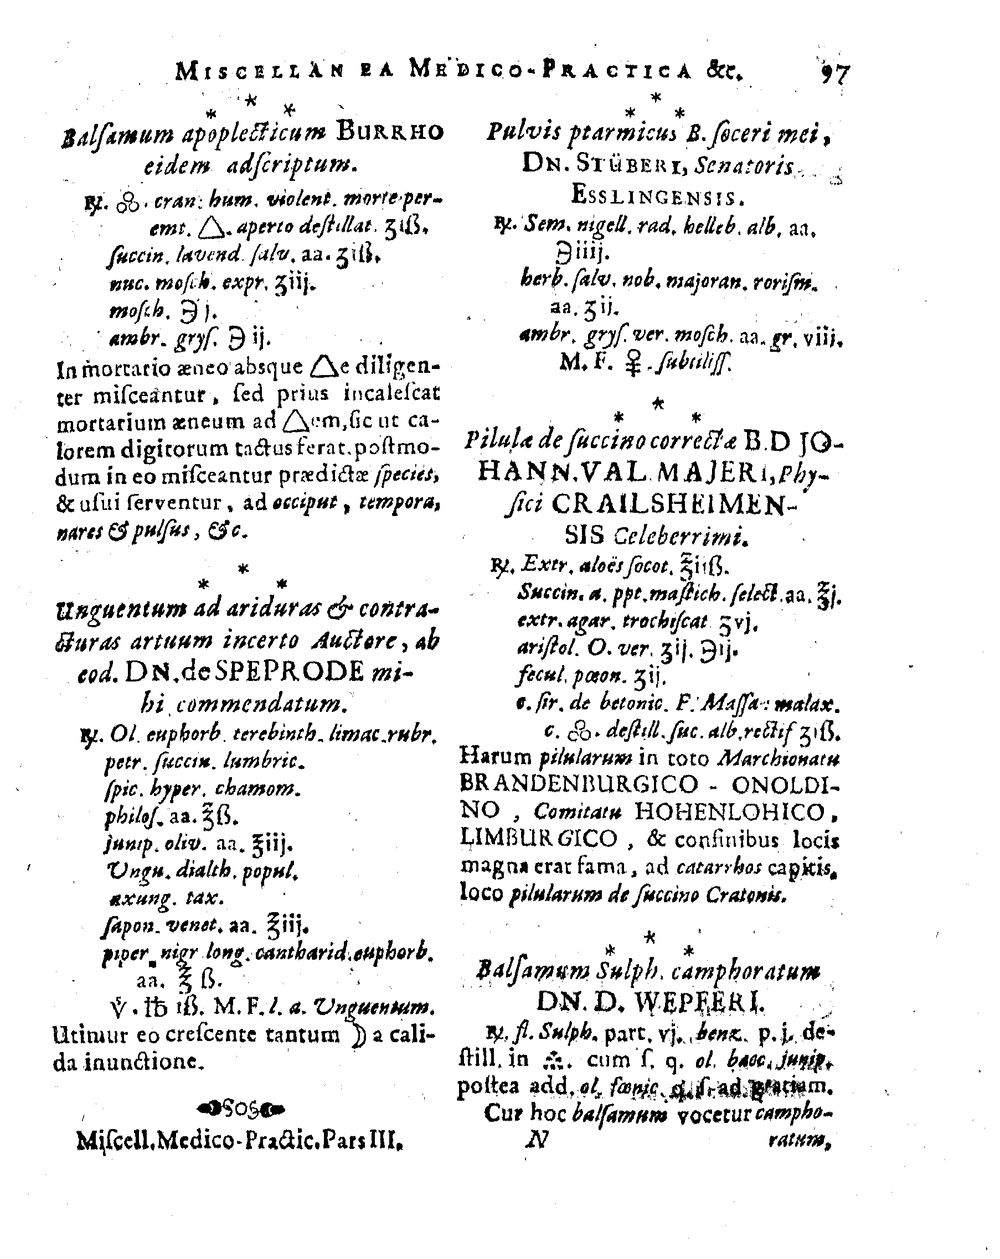 MISCELLANEA MEDICO-PRACTICA &c. 97
* * *
Balſamum apoplecticum BURRHO
eidem adſcriptum.
℞. ꝏ. cran. hum. violent. morte per-
emt. △. aperto deſtillat. ʒiß.
ſuccin. lavend. ſalv. aa. ʒiß.
nuc. moſch. expr. ʒiij.
moſch. ℈j.
ambr. gryſ. ℈ij.
In mortario æneo absque △e diligen-
ter miſceantur, ſed prius incaleſcat
mortarium æneum ad △em, ſic ut ca-
lorem digitorum tactus ferat, poſtmo-
dum in eo miſceantur prædictæ ſpecies,
& uſui ſerventur, ad occiput, tempora,
nares & pulſus, &c.
* * *
Unguentum ad ariduras & contra-
cturas artuum incerto Auctore, ab
eod. DN. de SPEPRODE mi-
hi commendatum.
℞. Ol. euphorb. terebinth. limac. rubr.
petr. ſuccin. lumbric.
ſpic. hyper. chamom.
philoſ. aa. ℥ß.
junip. oliv. aa. ℥iij.
Ungu. dialth. popul.
axung. tax.
ſapon. venet. aa. ℥iij.
piper. nigr long. cantharid. euphorb.
aa. ℥ ß.
iß. M. F. l. a. Unguentum.
Utimur eo creſcente tantum ☽ a cali-
da inunctione.
Miſcell. Medico-Practic. Pars III.
* * *
Pulvis ptarmicus B. ſoceri mei,
DN. STÜBERI, Senatoris
ESSLINGENSIS.
℞. Sem. nigell. rad. helleb. alb. aa.
℈iiij.
herb. ſalv. nob. majoran. roriſm.
aa. ʒij.
ambr. gryſ. ver. moſch. aa. gr. viij.
M. F. ♀. ſubtiliſſ.
* * *
Pilulæ de ſuccino correctæ B. D JO-
HANN. VAL. MAJERI, Phy-
ſici CRAILSHEIMEN-
SIS Celeberrimi.
℞. Extr. aloës ſocot. ℥iiß.
Succin. a. ppt. maſtich. ſelect. aa. ℥j.
extr. agar. trochiſcat ʒvj.
ariſtol. O. ver. ʒij. ℈ij.
fecul. pœon. ʒij.
c. ſir. de betonic. F. Maſſa: malax.
c. ꝏ. deſtill. ſuc. alb. rectif ʒiß.
Harum pilularum in toto Marchionatu
BRANDENBURGICO - ONOLDI-
NO, Comitatu HOHENLOHICO,
LIMBURGICO, & confinibus locis
magna erat fama, ad catarrhos capitis,
loco pilularum de ſuccino Cratonis.
* * *
Balſamum Sulph. camphoratum
DN. D. WEPFERI.
℞. fl. Sulph. part. vj. benz. p. j. de-
ſtill. in cum ſ. q. ol. bacc. junip.
poſtea add. ol. fœnic. q. ſ. ad gratiam.
Cur hoc balſamum vocetur campho-
N ratum,